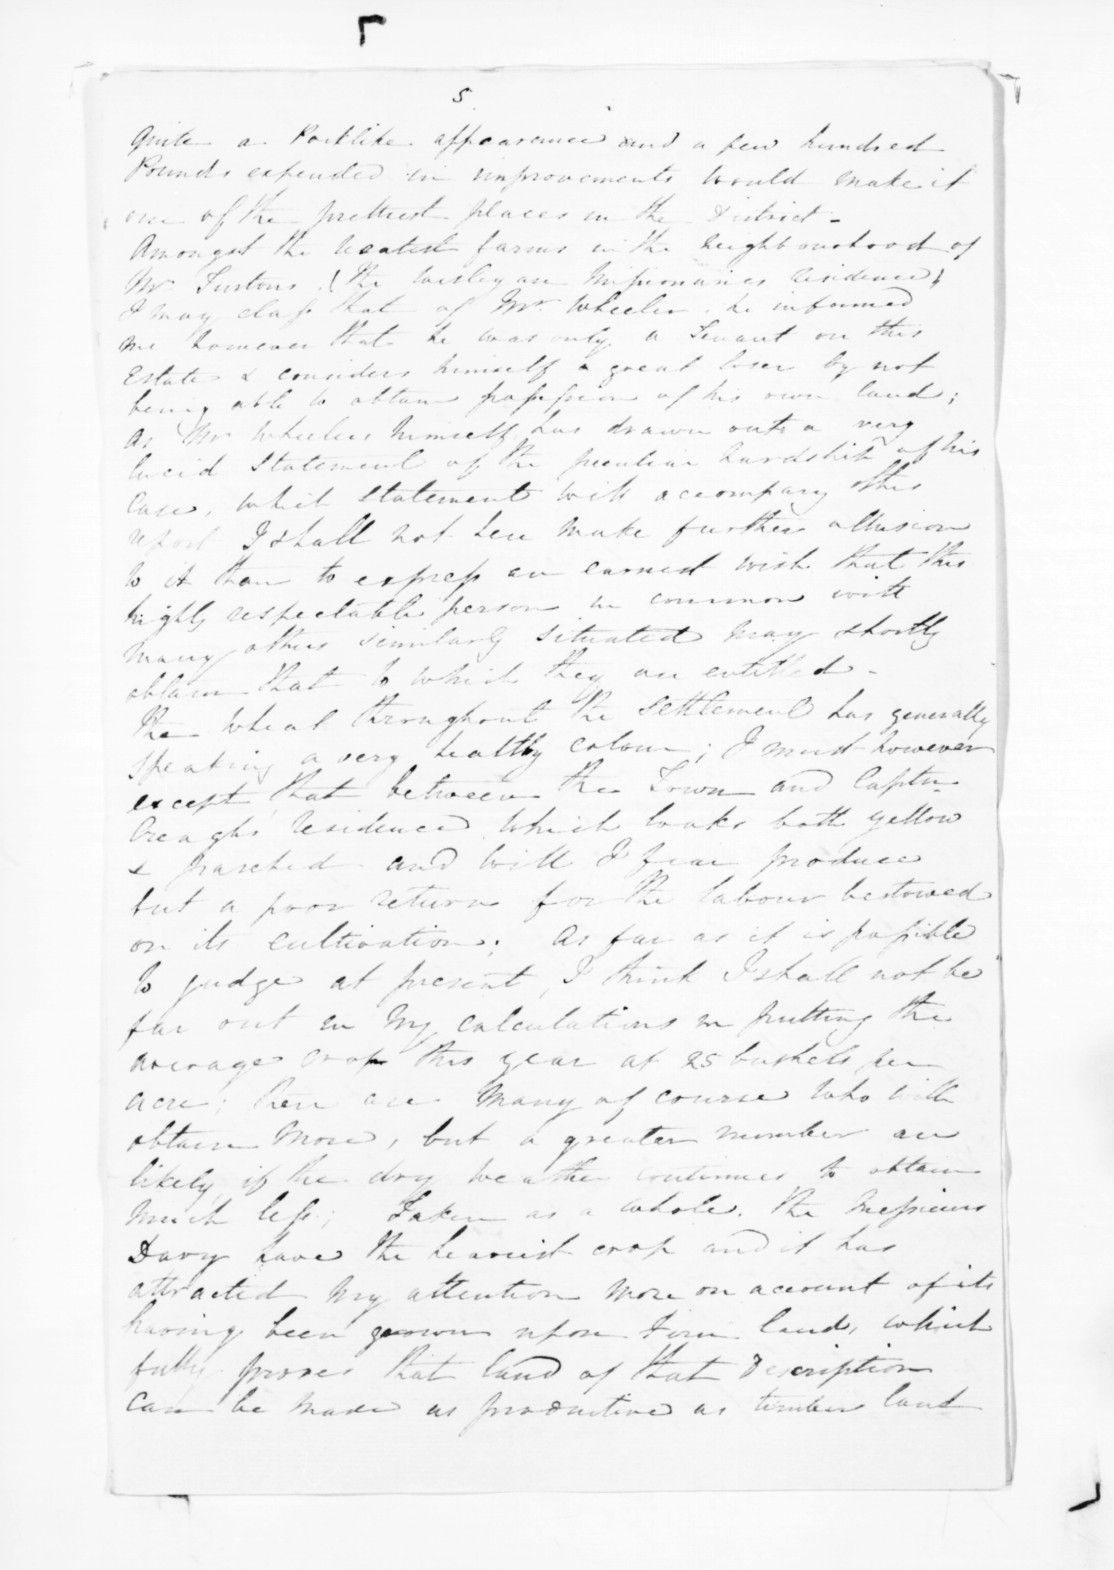 5
Quite a Parklike appearance and a few hundred
Pounds expended in improvements would make it
one of the prettiest places in the District -
Amongst the neatest farms in the neighbourhood of
Mr. (The Wesleyan Missionaries residence)
I may class that of Mr. Wheeler. he informed
me however that he was only a Tenant on this
Estate & considers himself a great loser by not
being able to obtain possession of his own land;
As Mr Wheeler himself has drawn out a very
lucid statement of the peculiar hardship of his
Case, which statement will accompany this
report I shall not here make further allusion
to it than to express an earnest wish that this
highly respectable person in common with
many others similarly situated may shortly
obtain that to which they are entitled -
The Wheat throughout the Settlement has generally
speaking a very healthy colour; I must however
except that between the Town and Captn.
Creaghs residence which looks both yellow
& parched and will I fear produce
but a poor return for the labour bestowed
on its cultivation; As far as it is possible
to judge at present, I think I shall not be
far out in my calculations in putting the
average crop this year at 25 bushels per
acre; there are many of course who will
obtain more, but a greater number are
likely, if the dry weather continues to obtain
much less; Taken as a whole. The Messieurs
Davy have the heaviest crop and it has
attracted my attention more on account of its
having been grown upon Fern land, which
fully proves that land of that Description
can be made as productive as timber land